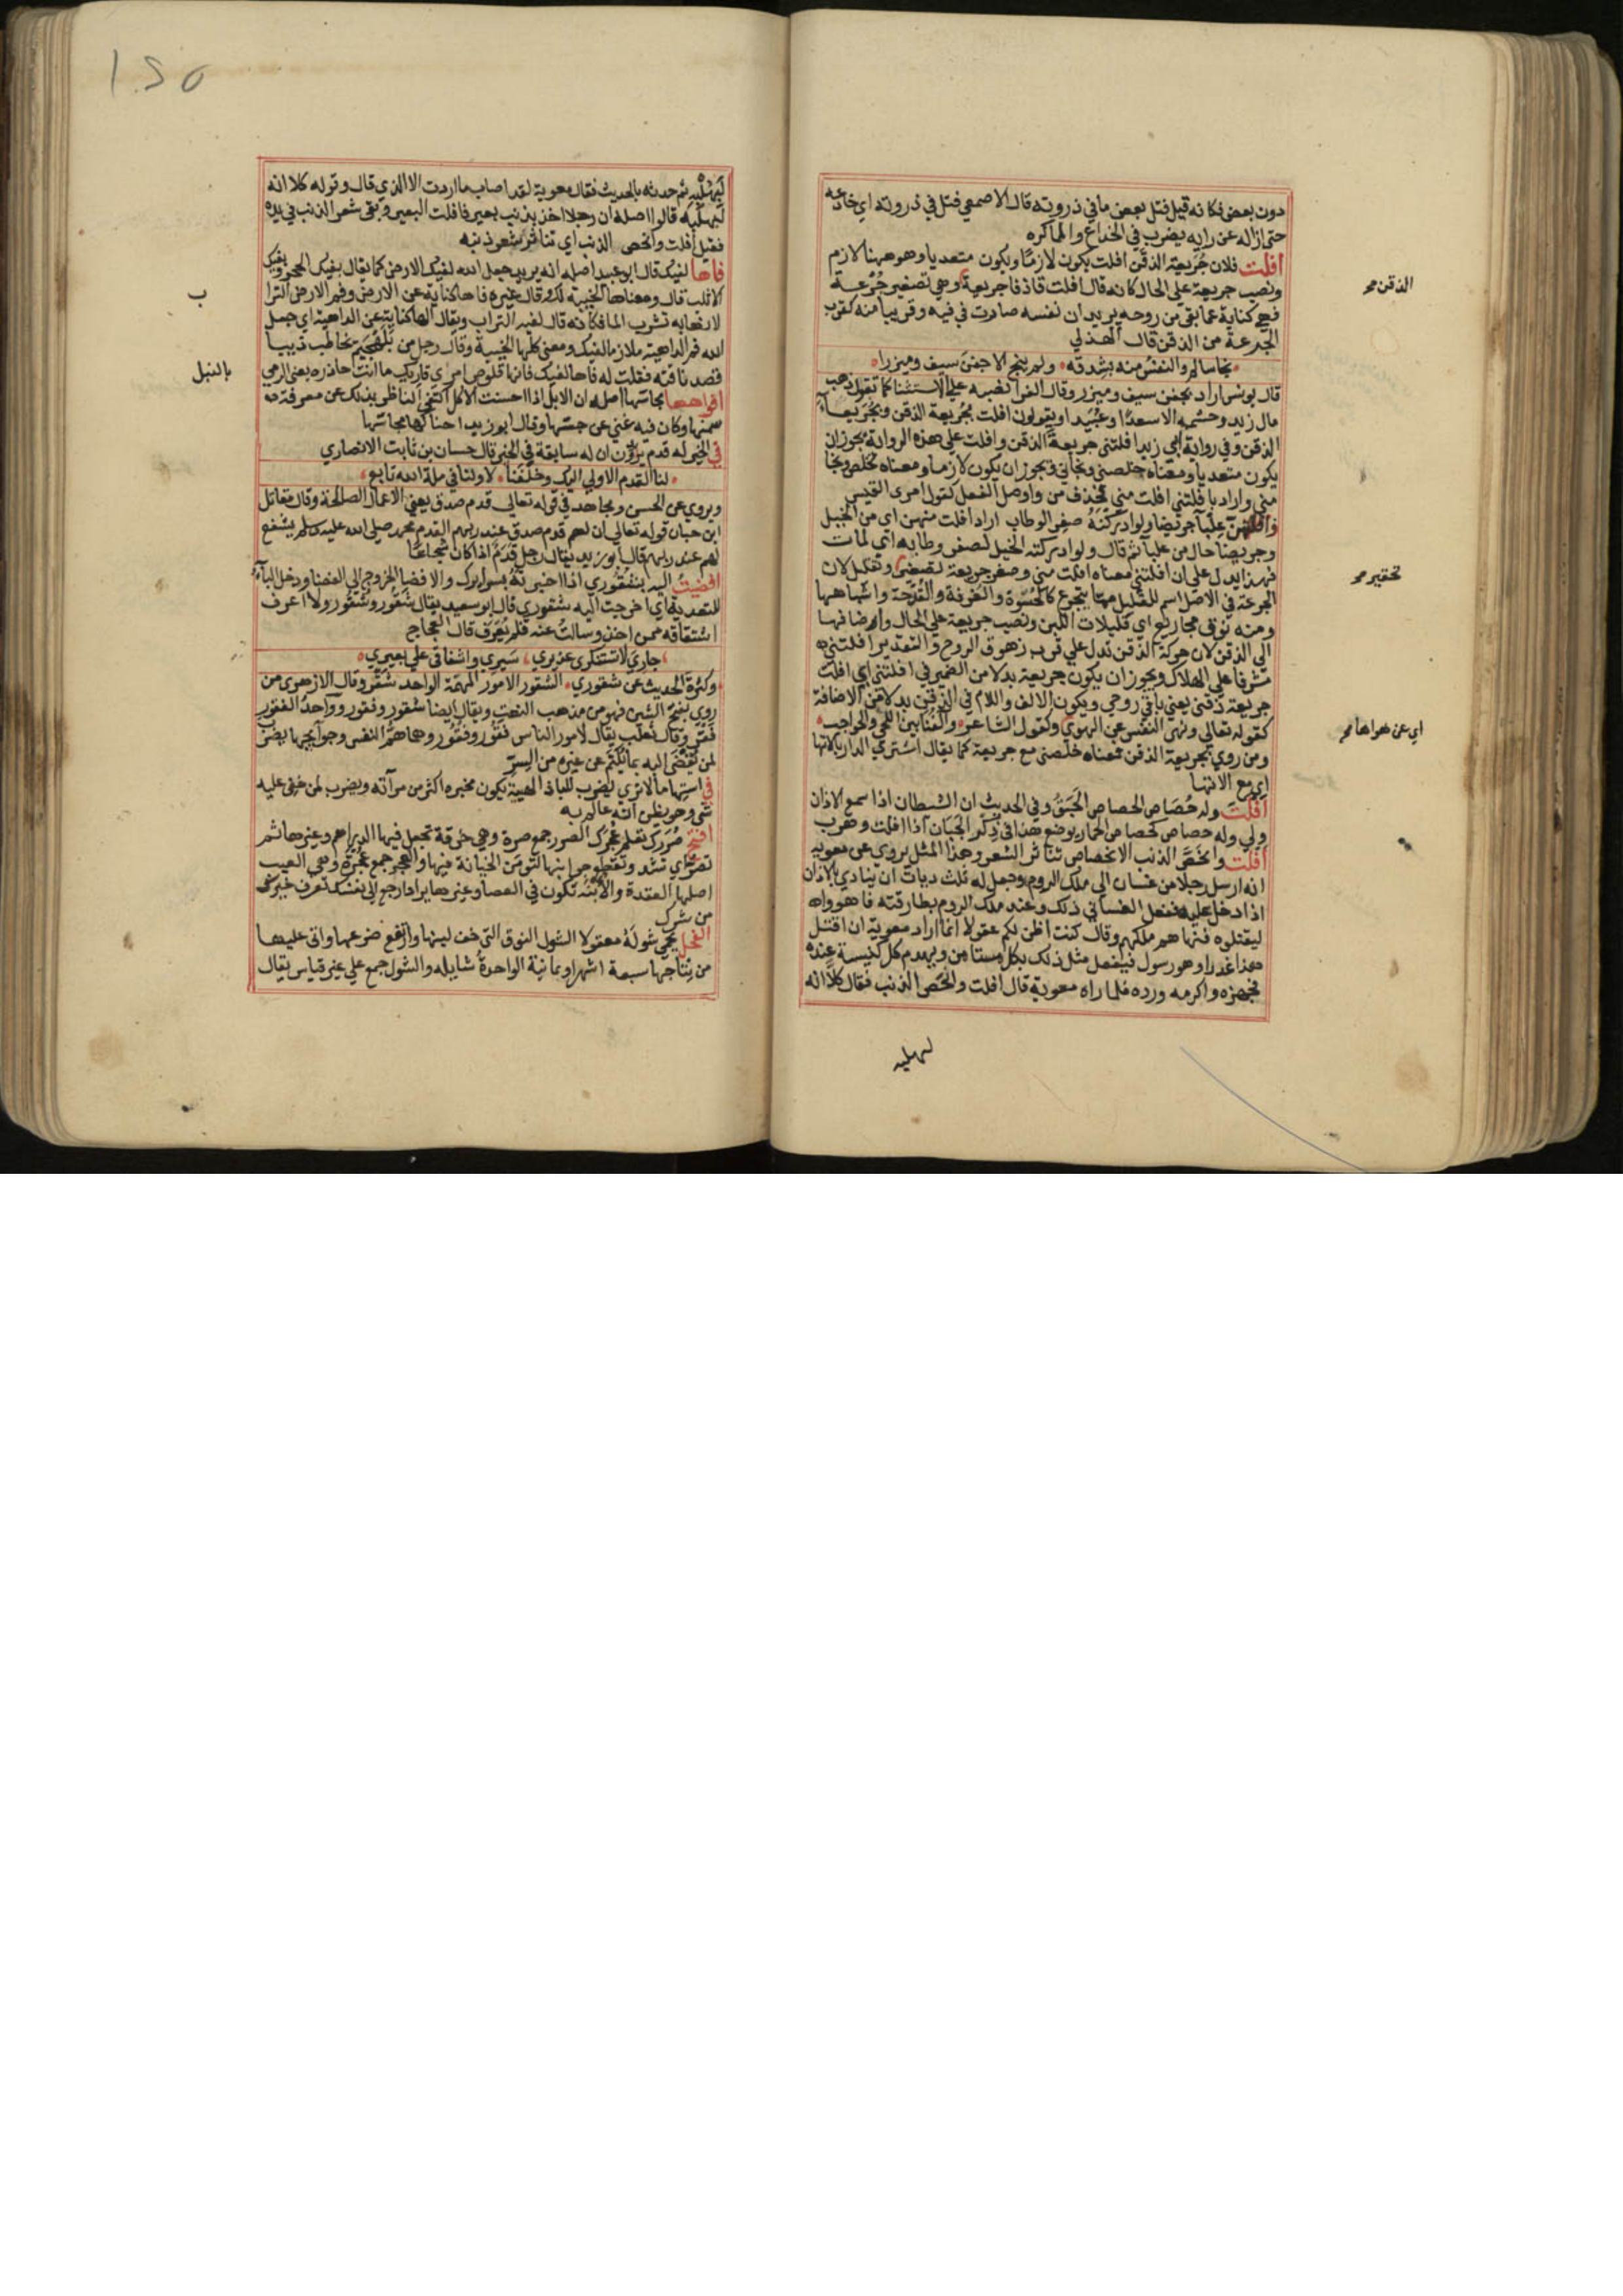 دون بعض فكانه قيل فتل بعض ما في ذروته قال الاصمعي فتل في ذروته اي خادعه
حتى ازاله عن رايه يضرب في الخداع والمماكره
افلت فلان جُرَيعة الذقن افلت يكون لازمًا ويكون متعديا وهو ههنا لازم
ونصب جريعة على الحال كانه قال افلت قاذفا جريعة وهي تصغير جُرْعة
فهي كناية عما بقي من روحه يريد ان نفسه صارت في فيه وقريبا منه كقرب
الجرعة من الذقن قال الهذلي
نجا سالم والنفسُ منه بشدقه ولم ينج الا جفنَ سيف وميزرا
قال يونس اراد بجفن سيف وميزر وقال الفرا نصبه على الاستثنا كما تقول ذهب
مال زيد وحشمه الا سعدًا وعُبَيدا ويقولون افلت بجُريعة الذقن وبجُرَيعاء
الذقن وفي رواية ابي زيد افلتني جريعة الذقن وافلت على هذه الرواية يجوز ان
يكون متعديا ومعناه خلصني ونجاني فيجوز ان يكون لازما ومعناه تخلص ونجا
مني واراد بافلتني افلت مني فحذف من واوصل الفعل كقول امرى القيس
وافلتهن عِلْبآ جريضا ولو ادركْنَهُ صفر الوطاب اراد افلت منهن اي من الخيل
وجريضا حال من علبآ ثم قال ولو ادركته الخيل لصفر وطابه اي لمات
فهذا يدل على ان افلتني معناه افلت مني وصغر جريعة وتقليل لان
الجرعة في الاصل اسم للقليل مما يتجرع كالحُسْوة والغُرفة والقُدْحة واشباهها
ومنه نوق مجاريع اي قليلات اللبن ونصب جريعة على الحال واضافها
الى الذقن لان حركة الذقن تدل على قرب زهوق الروح والتقدير افلتني
مشرفا على الهلاك ويجوز ان يكون جريعة بدلا من الضمير في افلتني اي افلت
جريعة ذقني يعني باقي روحي ويكون الالف واللام في الذقن بدلا من الاضافة
كقوله تعالى ونهى النفس عن الهوى وكقول الشاعر وآنفنا بين اللحى والحواجب
ومن روى بجريعة الذقن فمعناه خلصني مع جريعة كما يقال اشتري الدار بالاتها
اي مع الاتها
افلتَ وله حُصَاص الحصاص الحَبَقُ وفي الحديث ان الشيطان اذا سمع الاذان
ولى وله حصاص كحصاص الحمار يوضع هذا في ذكر الجَبَان اذا افلت وهرب
افلت وانحَصَّ الذنب الانحصاص تناثر الشعر وهذا المثل يروى عن معويه
انه ارسل رجلا من غسان الى ملك الروم وجعل له ثلث ديات ان ينادي بالاذان
اذا دخل عليه ففعل الغساني ذلك وعند ملك الروم بطارقته فاهووا به
ليقتلوه فنهاهم ملكهم وقال كنت اظن لكم عقولا انما اراد معوية ان اقتل
هذا غدرا وهو رسول فيفعل مثل ذلك بكل مستامن ويهدم كل كنيسة عنده
فجهزه واكرمه ورده فلما راه معوية قال افلت وانحص الذنب فقال كلا انه
لبهلبه
الذقن صح
تحقير صح
اي عن هواها صح
١٢٥
لَبِهُلْبِهِ ثم حدثه بالحديث فقال معوية لقد اصاب ما اردت الا الذي قال وقوله كلا انه
لبهلبه قالوا اصله ان رجلا اخذ بذنب بعير فافلت البعير وبقي شعر الذنب في يده
فقيل افلت وانحص الذنب اي تناثر شعر ذنبه
فاها لفيك قال ابو عبيد اصله انه يريد جعل الله لفيك الارض كما يقال بفيك الحجر وبفيك
الاثلب قال ومعناها الخيبة لك وقال غيره فاها كناية عن الارض وفم الارض الترا
لانها به تشرب الما فكانه قال لفيه التراب ويقال الها كناية عن الداهية اي جعل
الله فم الداهية ملازما لفيك ومعنى كلها الخيبة وقال رجل من بلهجيم يخاطب ذيبا
قصد ناقته فقلت له فاها لفيك فانها قلوص امري قاريك ما انت حاذره يعني الرمي
افواهها مجاسّها اصله ان الابل اذا احسنت الاكل اكتفى الناظر بذلك عن معرفة
سمنها وكان فيه غني عن جسّها وقال ابو زيد احناكها مجاسّها
في الخير له قدم يريدون ان له سابقة في الخير قال حسان بن ثابت الانصاري
لنا القدم الاولى اليك وخلفنا لاولنا في ملة الله تابع
ويروى عن الحسن ومجاهد في قوله تعالى قدم صدق يعني الاعمال الصالحة وقال مقاتل
ابن حبان قوله تعالى ان لهم قدم صدق عند ربهم القدم محمد صلى الله عليه وسلم يشفع
لهم عند ربهم قال ابو زيد يقال رجل قَدَمٌ اذا كان شجاعًا
افضيتُ اليه بشُقُوري اذا اخبرتَهُ بسرايرك والافضا الخروج الى الفضا ودخل البآء
للتعدية اي اخرجت اليه شقوري قال ابو سعيد يقال شَقُور وشُقُور ولا اعرف
اشتقاقه ممن اخذ وسالتُ عنه فلم يُعرَف قال العجاج
جاريَ لا تستنكري عذيري سَيرِي واشفاقي على بعيري
وكثرة الحديث عن شقوري الشقور الامور المهمة الواحد شَقْر وقال الازهري من
روى بفتح الشين فهو من مذهب النعت ويقال ايضا شقور وفقور وواحدُ الفقور
فقر وقال ثعلب يقال لامور الناس فقور وفُقُور وهما همُّ النفس وحوآئجها يضرب
لمن تفضي اليه بما يُكتم عن غيره من السِرّ
في استِها ما لا تري يضرب للباذ الهيئة يكون مخبره اكثر من مرآته ويضرب لمن خفي عليه
شي وهو يظن انه عالم به
افتح صُرَرَك تعلم عُجَرَك الصرر جمع صرة وهي خرقة تجعل فيها الدراهم وغيرها ثم
تصر اي تشد وتقطع جوانبها لتؤمن الخيانة فيها والعجر جمع عُجْرة وهي العيب
اصلها العقدة والأُبْنَة تكون في العصا وغيرها يراد ارجع الى نفسك تعرف خيرك
من شرك
الفحل يحمي شولَهُ معقولا الشول النوق التي خف لبنها وارتفع ضرعها واتى عليها
من نتاجها سبعة اشهر او ثمانية الواحدةُ شايله والشول جمع على غير قياس يقال
ب
بالنبل